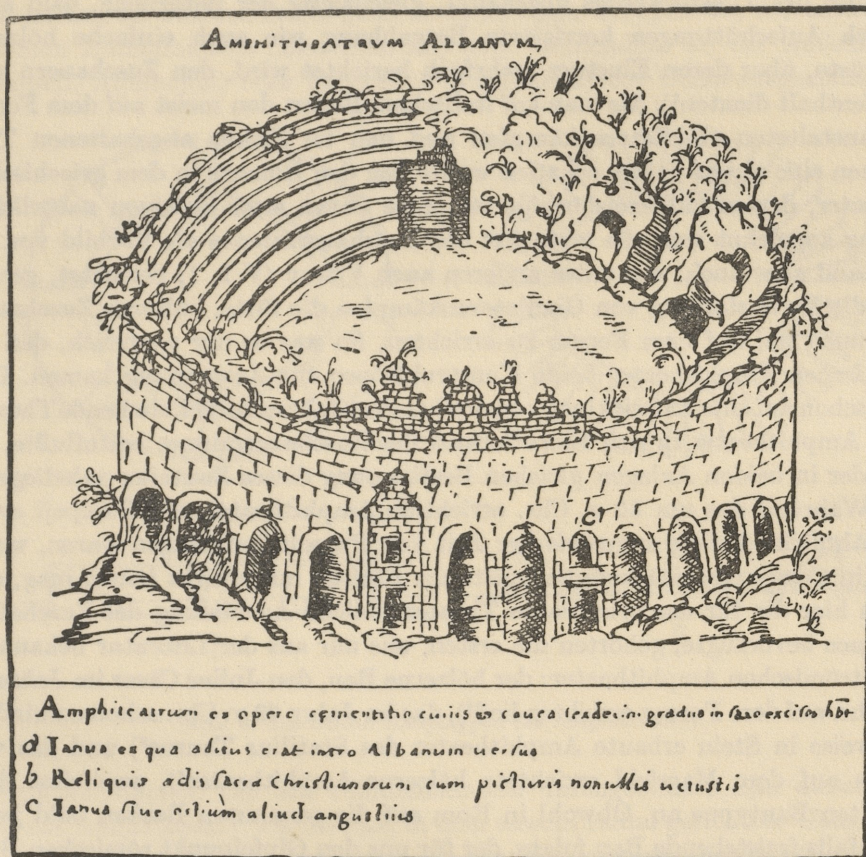 AMPHITHEATRVM ALBANVM,
b
C
Amphiteatrum ex opere cementitio cuius in cauea gradus in saxo excisos hbt
a Ianua ex qua aditus erat intro Albanum uersus
b Reliquię ędis sacrę Christianorum cum picturis nonnullis uetustis
C Ianua siue ostium aliud angustius